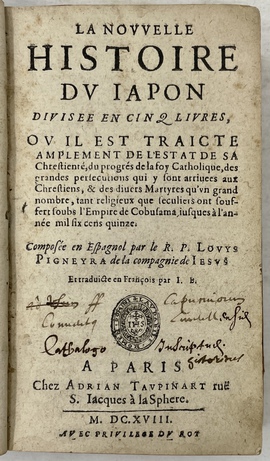 LA NOVVELLE
HISTOIRE
DV IAPON
DIVISEE EN CINQ LIVRES,
OV IL EST TRAICTE
AMPLEMENT DE L'ESTAT DE SA
Chrestienté, du progrés de la foy Catholique, des
grandes persecutions qui y sont arriuees aux
Chrestiens, & des diuers Martyres qu'vn grand
nombre, tant religieux que seculiers ont souf-
fert soubs l'Empire de Cobusama, iusques à l'an-
née mil six cens quinze.
Composée en Espagnol par le R. P. LOVYS
PIGNEYRA de la compagnie de IESVS
Et traduicte en François par I. B.
Cathalogo Inscriptus
A PARIS
Chez ADRIAN TAVPINART ruë
S. Iacques à la Sphere.
M. DC. XVIII.
AVEC PRIVILEGE DV ROY